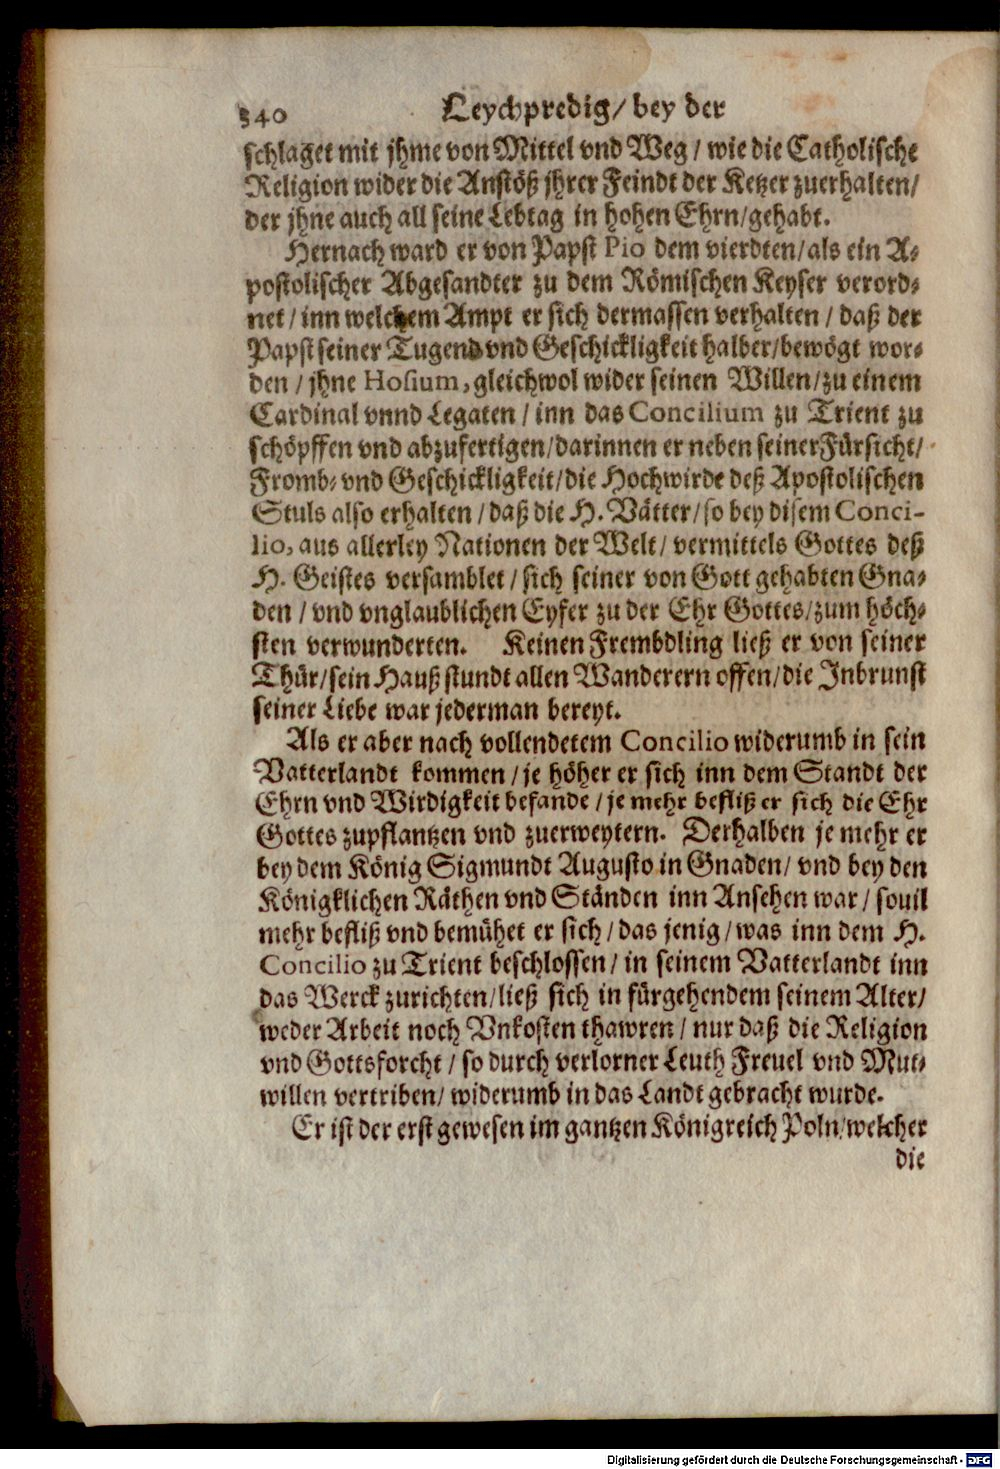 340 Leychpredig/ bey der
schlaget mit jhme von Mittel vnd Weg / wie die Catholische
Religion wider die Anstöß jhrer Feindt der Ketzer zuerhalten/
der jhne auch all seine Lebtag in hohen Ehrn/gehabt.
Hernach ward er von Papst Pio dem vierdten/als ein A-
postolischer Abgesandter zu dem Römischen Keyser verord-
net / inn welchem Ampt er sich dermassen verhalten / daß der
Papst seiner Tugend vnd Geschickligkeit halber/bewögt wor-
den / jhne Hosium, gleichwol wider seinen Willen/zu einem
Cardinal vnnd Legaten / inn das Concilium zu Trient zu
schöpffen vnd abzufertigen/darinnen er neben seiner Fürsicht/
Fromb- vnd Geschickligkeit/die Hochwirde deß Apostolischen
Stuls also erhalten / daß die H. Vätter/so bey disem Conci-
lio, aus allerley Nationen der Welt/ vermittels Gottes deß
H. Geistes versamblet / sich seiner von Gott gehabten Gna-
den / vnd vnglaublichen Eyfer zu der Ehr Gottes/zum höch-
sten verwunderten. Keinen Frembdling ließ er von seiner
Thür/sein Hauß stundt allen Wanderern offen/die Inbrunst
seiner Liebe war jederman bereyt.
Als er aber nach vollendetem Concilio widerumb in sein
Vatterlandt kommen / je höher er sich inn dem Standt der
Ehrn vnd Wirdigkeit befande / je mehr befliß er sich die Ehr
Gottes zupflantzen vnd zuerweytern. Derhalben je mehr er
bey dem König Sigmundt Augusto in Gnaden/ vnd bey den
Königklichen Räthen vnd Ständen inn Ansehen war / souil
mehr befliß vnd bemühet er sich / das jenig / was inn dem H.
Concilio zu Trient beschlossen / in seinem Vatterlandt inn
das Werck zurichten/ließ sich in fürgehendem seinem Alter/
weder Arbeit noch Vnkosten thawren / nur daß die Religion
vnd Gottsforcht / so durch verlorner Leuth Freuel vnd Mut-
willen vertriben/ widerumb in das Landt gebracht wurde.
Er ist der erst gewesen im gantzen Königreich Poln/welcher
die
Digitalisierung gefördert durch die Deutsche Forschungsgemeinschaft - DFG